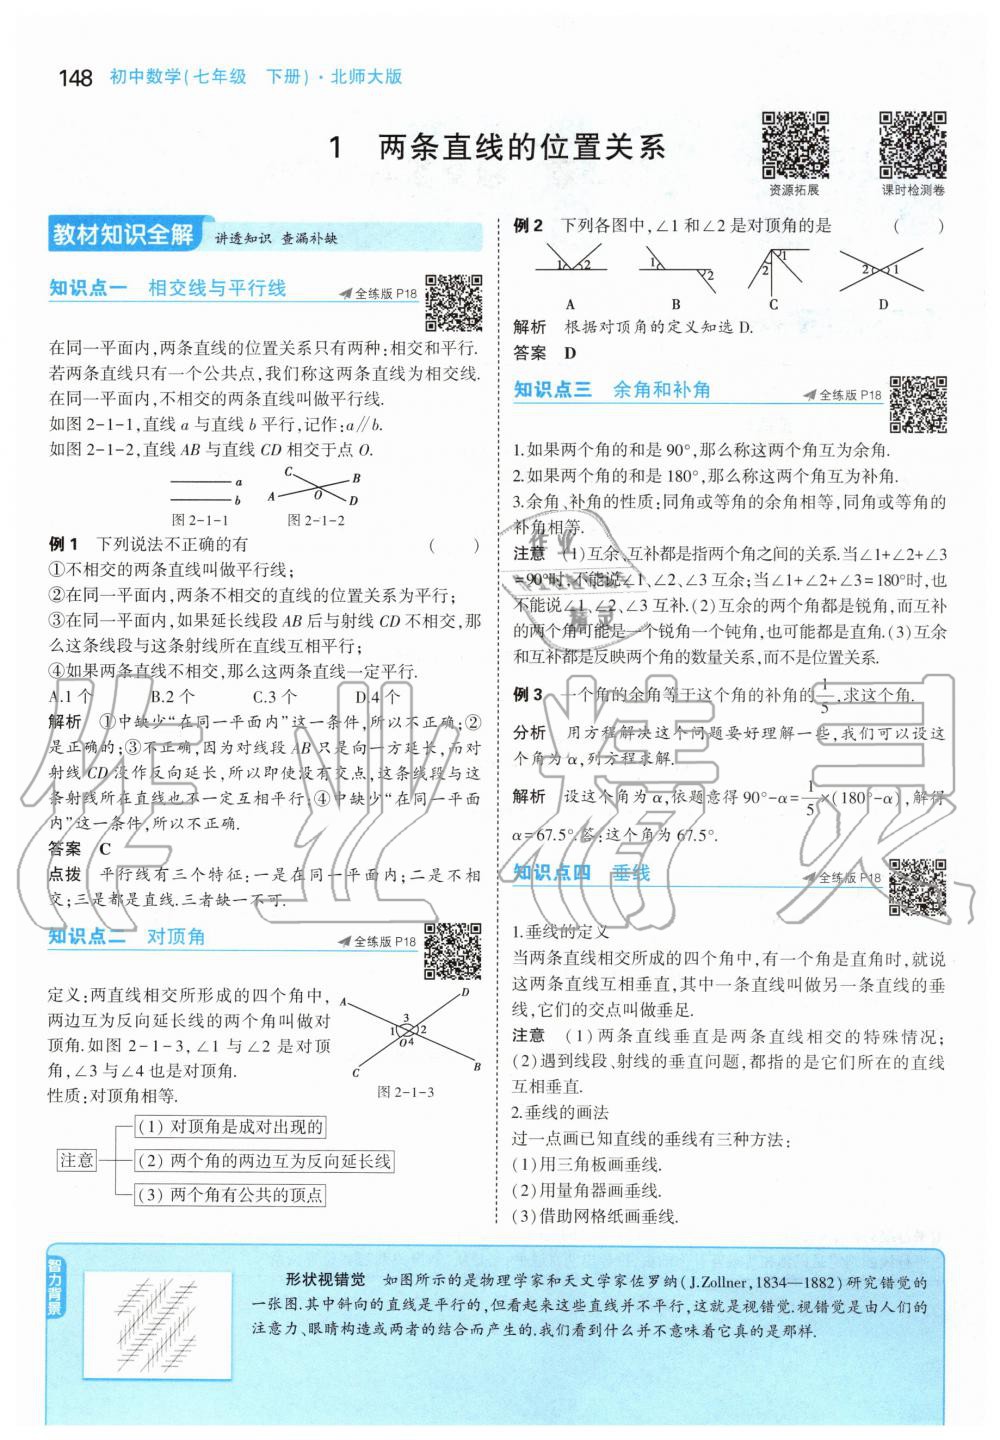 148 初中数学(七年级 下册)·北师大版
1 两条直线的位置关系
资源拓展
课时检测卷
教材知识全解 讲透知识 查漏补缺
知识点一 相交线与平行线 全练版 P18
在同一平面内,两条直线的位置关系只有两种:相交和平行.
若两条直线只有一个公共点,我们称这两条直线为相交线.
在同一平面内,不相交的两条直线叫做平行线.
如图2-1-1,直线a与直线b平行,记作:a∥b.
如图2-1-2,直线AB与直线CD相交于点O.
a
b
C
B
A
O
D
图2-1-1 图2-1-2
例1 下列说法不正确的有 ( )
①不相交的两条直线叫做平行线;
②在同一平面内,两条不相交的直线的位置关系为平行;
③在同一平面内,如果延长线段AB后与射线CD不相交,那
么这条线段与这条射线所在直线互相平行;
④如果两条直线不相交,那么这两条直线一定平行.
A.1个 B.2个 C.3个 D.4个
解析 ①中缺少“在同一平面内”这一条件,所以不正确;②
是正确的;③不正确,因为对线段AB只是向一方延长,而对
射线CD没作反向延长,所以即使没有交点,这条线段与这
条射线所在直线也不一定互相平行;④中缺少“在同一平面
内”这一条件,所以不正确.
答案 C
点拨 平行线有三个特征:一是在同一平面内;二是不相
交;三是都是直线.三者缺一不可.
知识点二 对顶角 全练版 P18
定义:两直线相交所形成的四个角中,
两边互为反向延长线的两个角叫做对
顶角.如图2-1-3,∠1与∠2是对顶
角,∠3与∠4也是对顶角.
性质:对顶角相等.
A
D
3
1
2
O
4
C
B
图2-1-3
注意
(1)对顶角是成对出现的
(2)两个角的两边互为反向延长线
(3)两个角有公共的顶点
例2 下列各图中,∠1和∠2是对顶角的是 ( )
1 2
1 2
1 2
2 1
A B C D
解析 根据对顶角的定义知选D.
答案 D
知识点三 余角和补角 全练版 P18
1.如果两个角的和是90°,那么称这两个角互为余角.
2.如果两个角的和是180°,那么称这两个角互为补角.
3.余角、补角的性质:同角或等角的余角相等,同角或等角的
补角相等.
注意 (1)互余、互补都是指两个角之间的关系.当∠1+∠2+∠3
=90°时,不能说∠1、∠2、∠3互余;当∠1+∠2+∠3=180°时,也
不能说∠1、∠2、∠3互补.(2)互余的两个角都是锐角,而互补
的两个角可能是一个锐角一个钝角,也可能都是直角.(3)互余
和互补都是反映两个角的数量关系,而不是位置关系.
例3 一个角的余角等于这个角的补角的1/5,求这个角.
分析 用方程解决这个问题要好理解一些,我们可以设这
个角为α,列方程求解.
解析 设这个角为α,依题意得90°-α=1/5×(180°-α),解得
α=67.5°.答:这个角为67.5°.
知识点四 垂线 全练版 P18
1.垂线的定义
当两条直线相交所成的四个角中,有一个角是直角时,就说
这两条直线互相垂直,其中一条直线叫做另一条直线的垂
线,它们的交点叫做垂足.
注意 (1)两条直线垂直是两条直线相交的特殊情况;
(2)遇到线段、射线的垂直问题,都指的是它们所在的直线
互相垂直.
2.垂线的画法
过一点画已知直线的垂线有三种方法:
(1)用三角板画垂线.
(2)用量角器画垂线.
(3)借助网格纸画垂线.
智力背景
形状视错觉 如图所示的是物理学家和天文学家佐罗纳(J.Zollner,1834—1882)研究错觉的
一张图.其中斜向的直线是平行的,但看起来这些直线并不平行,这就是视错觉.视错觉是由人们的
注意力、眼睛构造或两者的结合而产生的.我们看到什么并不意味着它真的是那样.
作业精灵